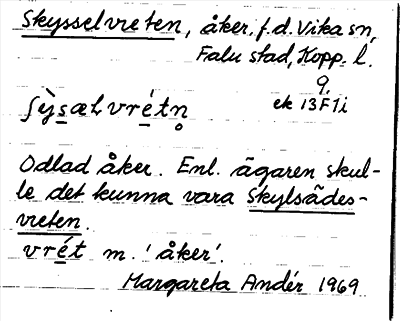 Skysselvreten, åker, f.d. Vika sn,
Falu stad, Kopp. l.
9.
ek 13F1i
ʃỳsæɫvrétn̥
Odlad åker. Enl. ägaren skul-
le det kunna vara Skylsädes-
vreten.
vrét m. 'åker'.
Margareta Andér 1969